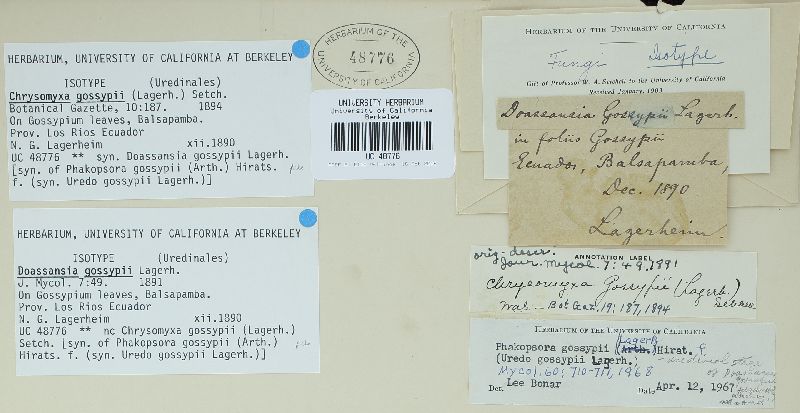 HERBARIUM, UNIVERSITY OF CALIFORNIA AT BERKELEY
ISOTYPE (Uredinales)
Chrysomyxa gossypii (Lagerh.) Setch.
Botanical Gazette, 10:187. 1894
On Gossypium leaves, Balsapamba.
Prov. Los Rios Ecuador
N. G. Lagerheim xii.1890
UC 48776 ** syn. Doassansia gossypii Lagerh.
[syn. of Phakopsora gossypii (Arth.) Hirats.
f. (syn. Uredo gossypii Lagerh.)]
HERBARIUM, UNIVERSITY OF CALIFORNIA AT BERKELEY
ISOTYPE (Uredinales)
Doassansia gossypii Lagerh.
J. Mycol. 7:49. 1891
On Gossypium leaves, Balsapamba.
Prov. Los Rios Ecuador
N. G. Lagerheim xii.1890
UC 48776 ** nc Chrysomyxa gossypii (Lagerh.)
Setch. [syn. of Phakopsora gossypii (Arth.)
Hirats. f. (syn. Uredo gossypii Lagerh.)]
HERBARIUM OF THE
48776
UNIVERSITY OF CALIFORNIA
UNIVERSITY HERBARIUM
University of California
Berkeley
UC 48776
HERBARIUM OF THE UNIVERSITY OF CALIFORNIA
Fungi Isotype
Gift of Professor W. A. Setchell to the University of California
Received January, 1903
Doassansia Gossypii Lagerh.
in foliis Gossypii
Ecuador, Balsapamba,
Dec. 1890
Lagerheim.
orig. descr.
Jour. Mycol. 7:49, 1891
ANNOTATION LABEL
Chrysomyxa Gossypii (Lagerh.)
Bot Gaz. 19:187, 1894
HERBARIUM OF THE UNIVERSITY OF CALIFORNIA
Lagerh.
Phakopsora gossypii (Arth.) Hirat. f.
(Uredo gossypii Lagerh.)
Mycol. 60: 710-711, 1968
Det. Lee Bonar Date Apr. 12, 1967